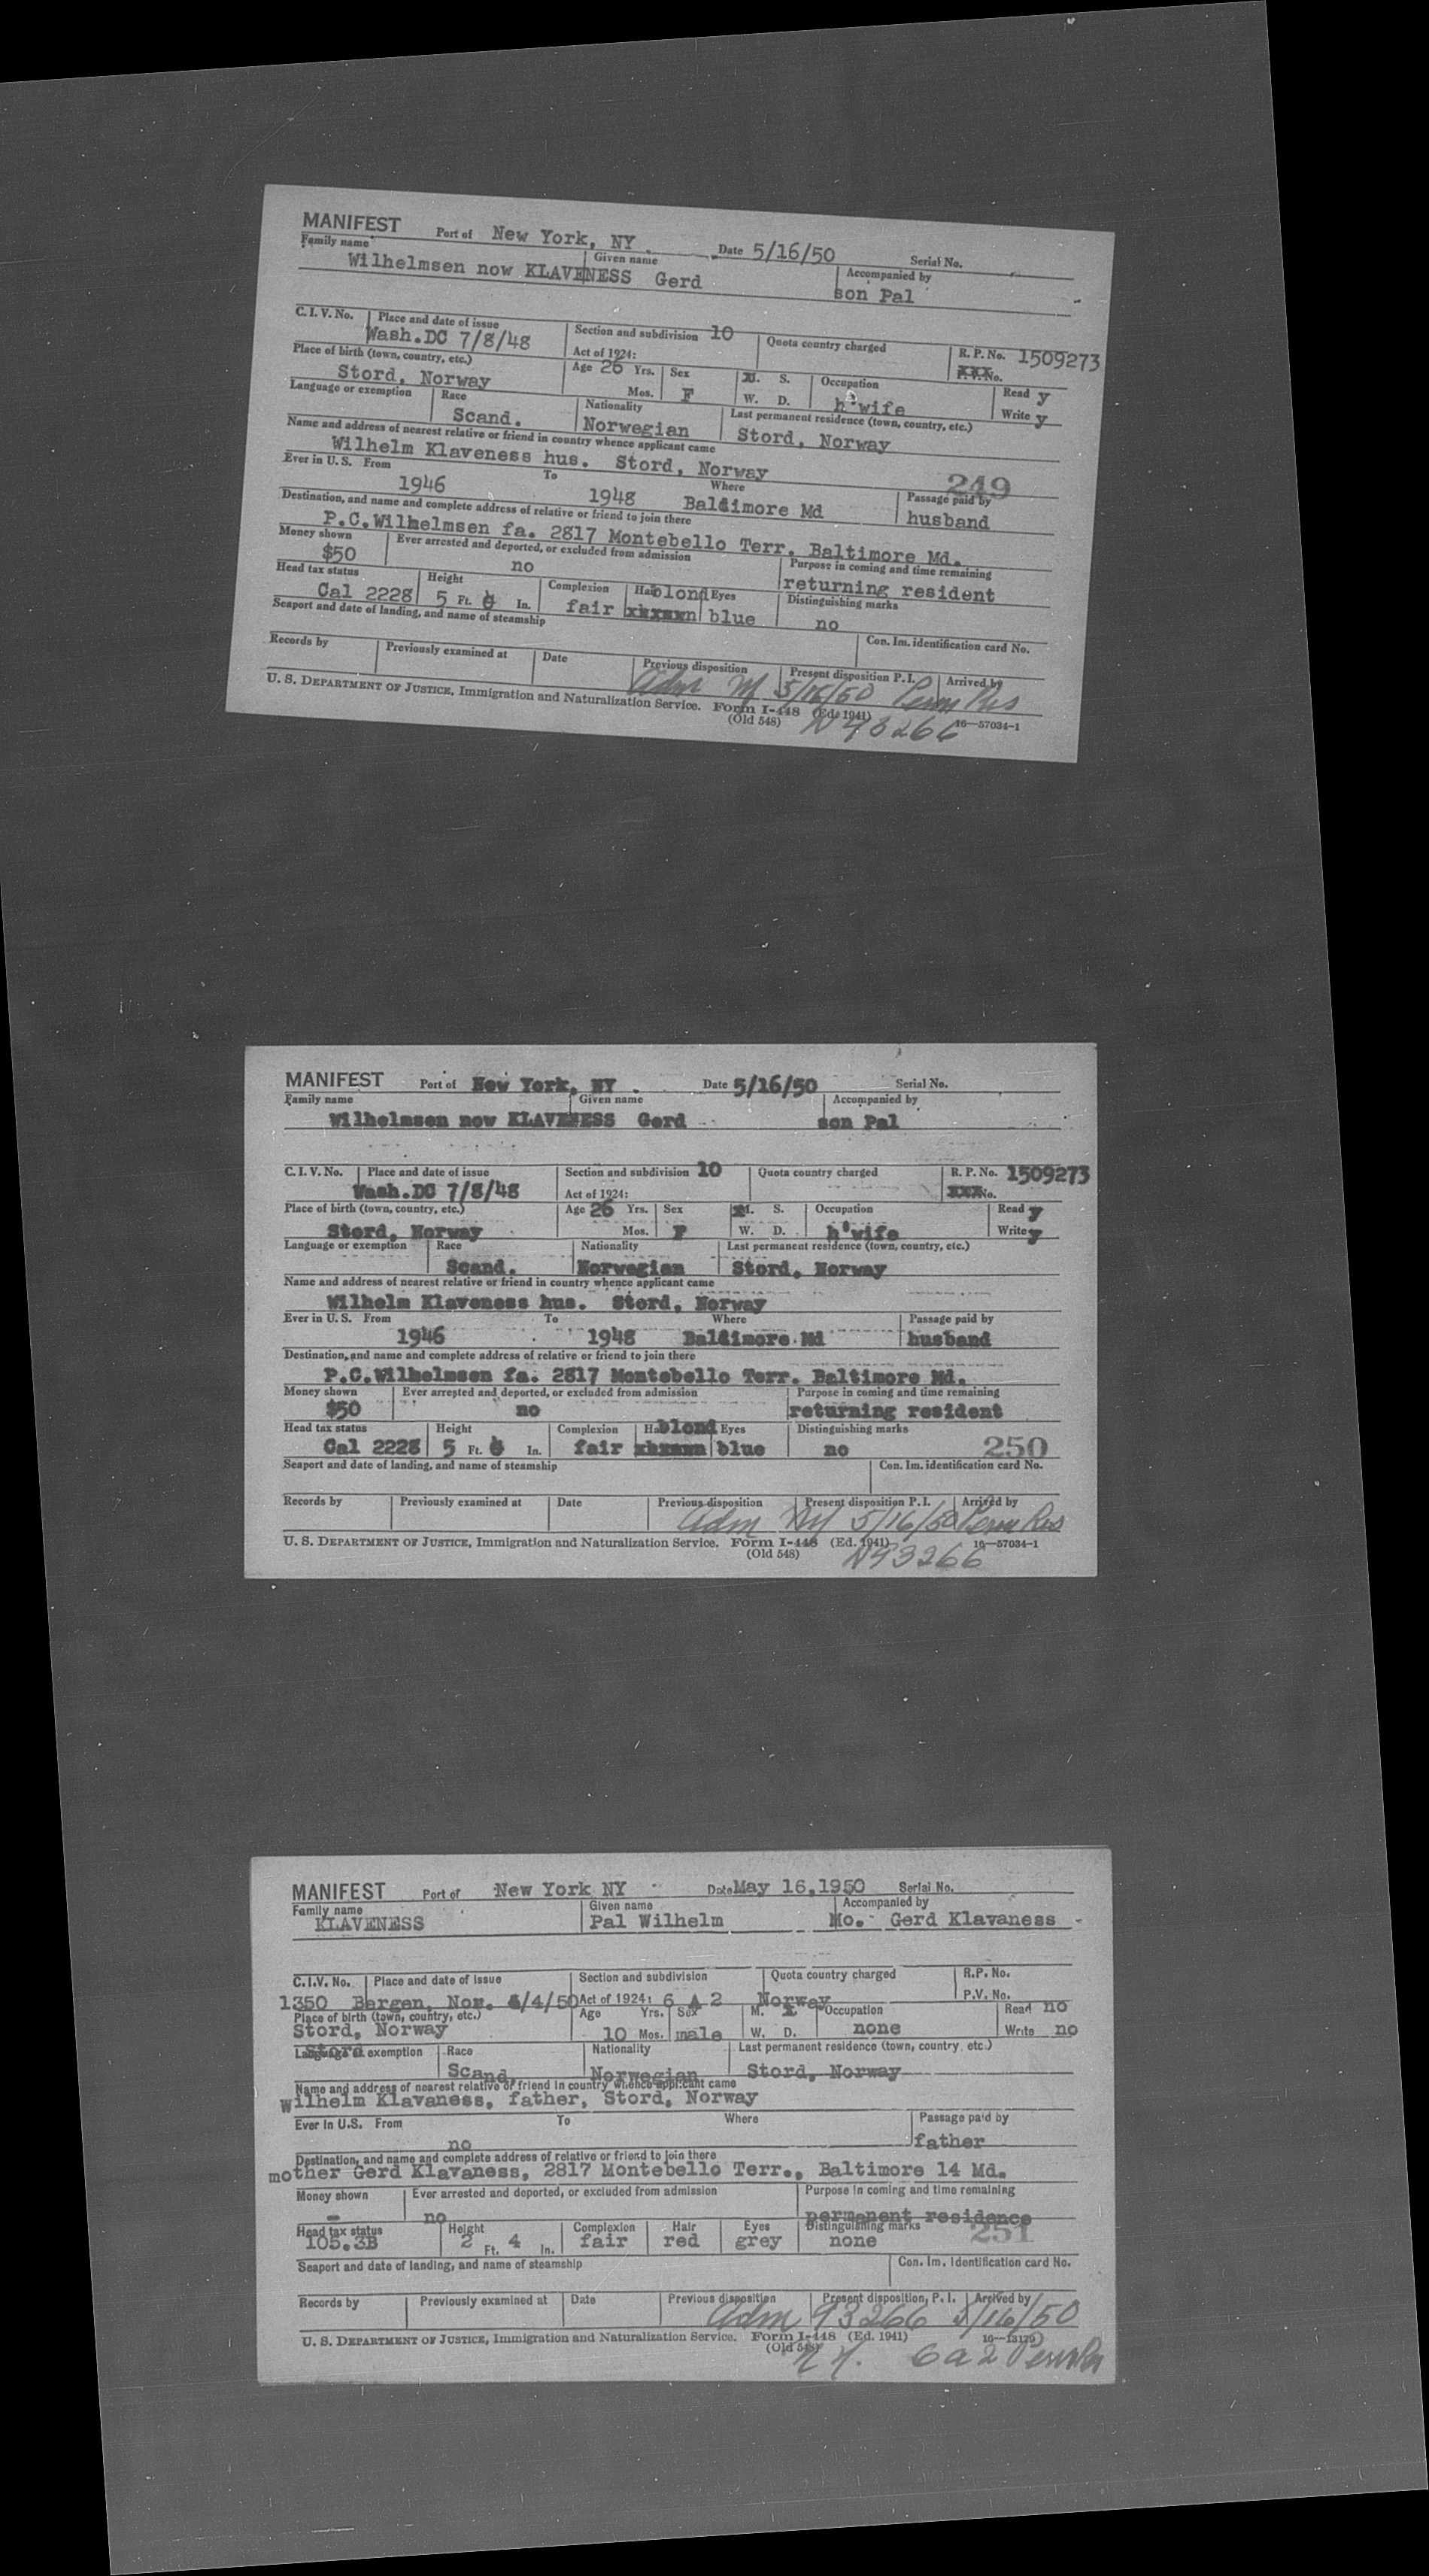 MANIFEST Port of New York, NY Date 5/16/50 Serial No.
Family name Given name Accompanied by
Wilhelmsen now KLAVENESS Gerd son Pal
C. I. V. No. Place and date of issue Section and subdivision 10 Quota country charged R. P. No. 1509273
Wash.DC 7/8/48 Act of 1924: P. V. No.
Place of birth (town, country, etc.) Age 26 Yrs. Sex M. S. Occupation Read y
Stord, Norway Mos. F W. D. h'wife Write y
Language or exemption Race Nationality Last permanent residence (town, country, etc.)
Scand. Norwegian Stord, Norway
Name and address of nearest relative or friend in country whence applicant came
Wilhelm Klaveness hus. Stord, Norway 249
Ever in U. S. From To Where Passage paid by
1946 1948 Baltimore Md husband
Destination, and name and complete address of relative or friend to join there
P.C.Wilhelmsen fa. 2817 Montebello Terr. Baltimore Md.
Money shown Ever arrested and deported, or excluded from admission Purpose in coming and time remaining
$50 no returning resident
Head tax status Height Complexion Hair blond Eyes Distinguishing marks
Cal 2228 5 Ft. 6 In. fair xxxxxn blue no
Seaport and date of landing, and name of steamship Con. Im. identification card No.
Records by Previously examined at Date Previous disposition Present disposition P. I. Arrived by
Adm NY 5/16/50 Perm Res
U. S. DEPARTMENT OF JUSTICE, Immigration and Naturalization Service. Form I-448 (Ed. 1941) 16—57034-1
(Old 548) N 93266
MANIFEST Port of New York, NY Date 5/16/50 Serial No.
Family name Given name Accompanied by
Wilhelmsen now KLAVENESS Gerd son Pal
C. I. V. No. Place and date of issue Section and subdivision 10 Quota country charged R. P. No. 1509273
Wash.DC 7/8/48 Act of 1924: XXX No.
Place of birth (town, country, etc.) Age 26 Yrs. Sex M. S. Occupation Read y
Stord, Norway Mos. F W. D. h'wife Write y
Language or exemption Race Nationality Last permanent residence (town, country, etc.)
Scand. Norwegian Stord, Norway
Name and address of nearest relative or friend in country whence applicant came
Wilhelm Klaveness hus. Stord, Norway
Ever in U. S. From To Where Passage paid by
1946 1948 Baltimore Md husband
Destination, and name and complete address of relative or friend to join there
P.C.Wilhelmsen fa. 2817 Montebello Terr. Baltimore Md.
Money shown Ever arrested and deported, or excluded from admission Purpose in coming and time remaining
$50 no returning resident
Head tax status Height Complexion Hair blond Eyes Distinguishing marks
Cal 2228 5 Ft. 6 In. fair xxxxxn blue no 250
Seaport and date of landing, and name of steamship Con. Im. identification card No.
Records by Previously examined at Date Previous disposition Present disposition P. I. Arrived by
Adm NY 5/16/50 Perm Res
U. S. DEPARTMENT OF JUSTICE, Immigration and Naturalization Service. Form I-448 (Ed. 1941) 16—57034-1
(Old 548) N93266
MANIFEST Port of New York NY Date May 16,1950 Serial No.
Family name Given name Accompanied by
KLAVENESS Pal Wilhelm Mo. Gerd Klavaness -
C.I.V. No. Place and date of issue Section and subdivision Quota country charged R.P. No.
1350 Bergen, Nor. 4/4/50 Act of 1924: 6 A 2 Norway P.V. No.
Place of birth (town, country, etc.) Age Yrs. Sex M. S. Occupation Read no
Stord, Norway 10 Mos. male W. D. none Write no
Language or exemption Race Nationality Last permanent residence (town, country, etc.)
Stord Scand. Norwegian Stord, Norway
Name and address of nearest relative or friend in country whence applicant came
Wilhelm Klavaness, father, Stord, Norway
Ever in U.S. From To Where Passage paid by
no father
Destination, and name and complete address of relative or friend to join there
mother Gerd Klavaness, 2817 Montebello Terr., Baltimore 14 Md.
Money shown Ever arrested and deported, or excluded from admission Purpose in coming and time remaining
- no permanent residence
Head tax status Height Complexion Hair Eyes Distinguishing marks 251
105.3B 2 Ft. 4 In. fair red grey none
Seaport and date of landing, and name of steamship Con. Im. Identification card No.
Records by Previously examined at Date Previous disposition Present disposition, P. I. Arrived by
Adm 93266 5/16/50
U. S. DEPARTMENT OF JUSTICE, Immigration and Naturalization Service. Form I-448 (Ed. 1941)
(Old 548) N.Y. 6a2 Perm Res